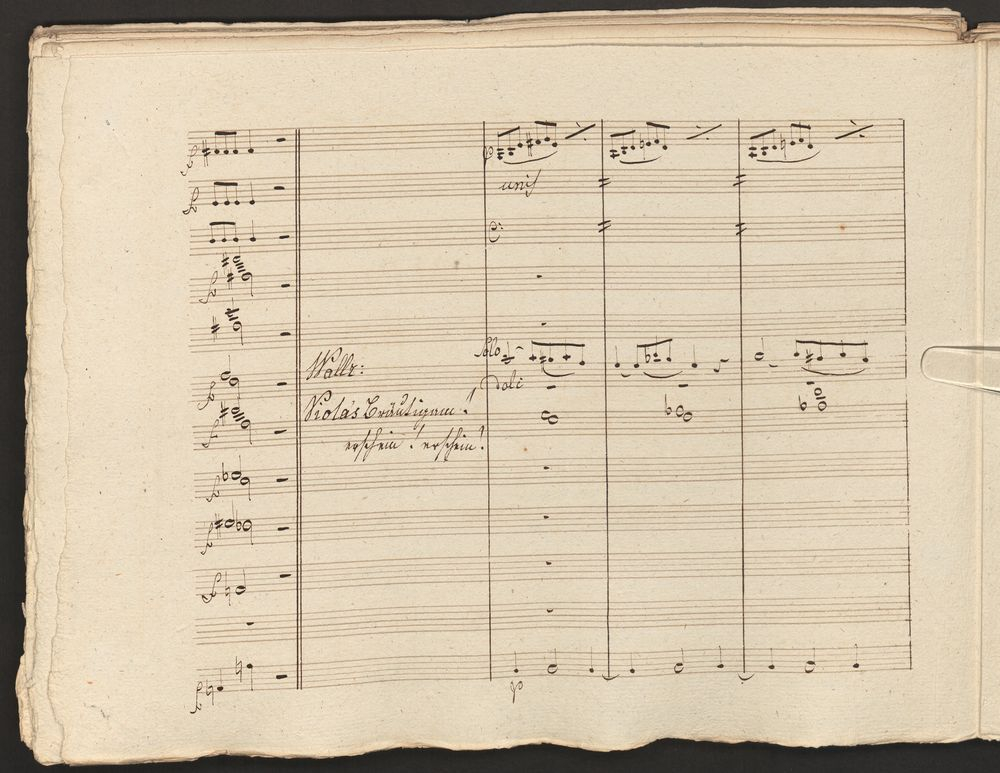 unis
Solo
dolc
Wallr:
Viola's Bräutigam!
erschein! erschein!
p